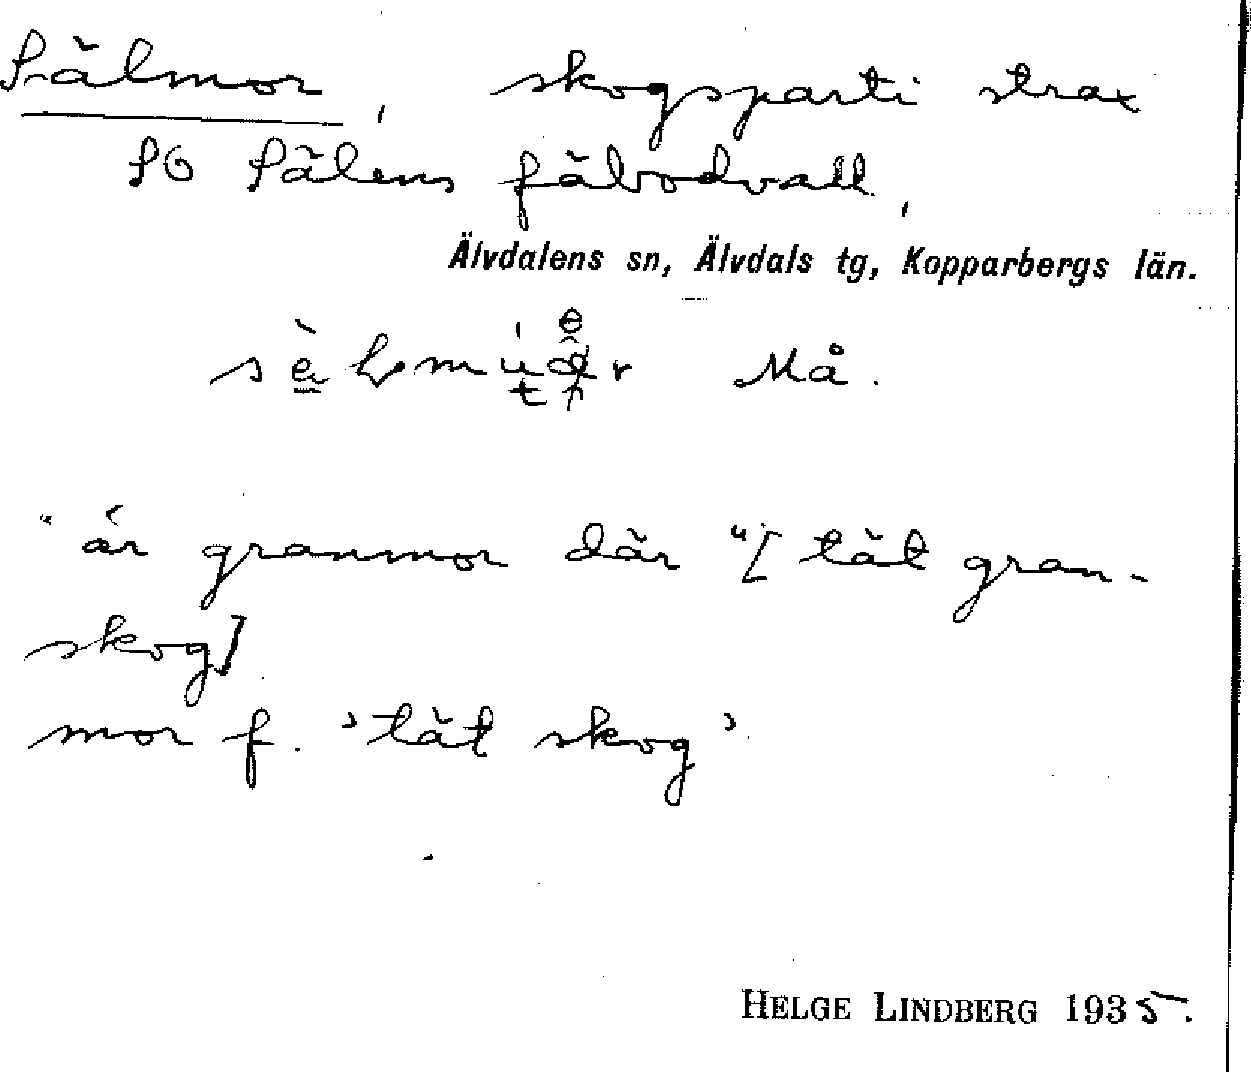 Sälmor, skogsparti strax
SO Sälens fäbodvall,
Älvdalens sn, Älvdals tg, Kopparbergs län.
Må.
"är granmor där" [tät gran-
skog]
mor f. 'tät skog'
HELGE LINDBERG 1935.